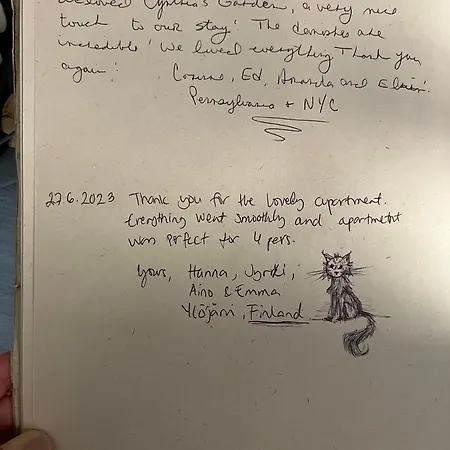 Cynthia's Garden, a very nice
touch to our stay! The danishes are
incredible! We loved everything Thank you
again!
Ed, Amanda and
Pennsylvania + NYC
27.6.2023 Thank you for the lovely apartment.
Everything went smoothly and apartment
was perfect for 4 pers.
Yours, Hanna, Jyrki,
Aino & Emma
Ylöjärvi, Finland